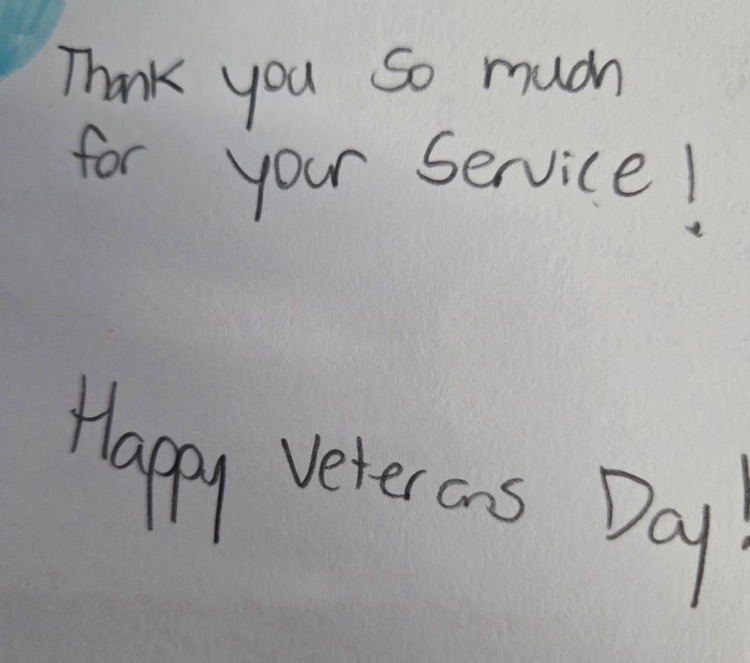 Thank you so much
for your Service!
Happy Veterans Day!